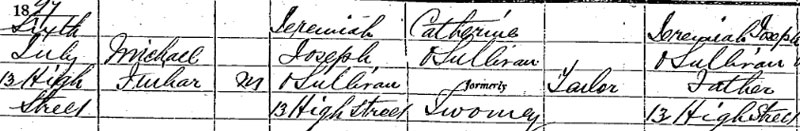 1897
Sixth Jeremiah Catherine Jeremiah Joseph
July Michael Joseph O'Sullivan O'Sullivan
13 High M O'Sullivan formerly Tailor Father
Street 13 High Street Twomey 13 High Street